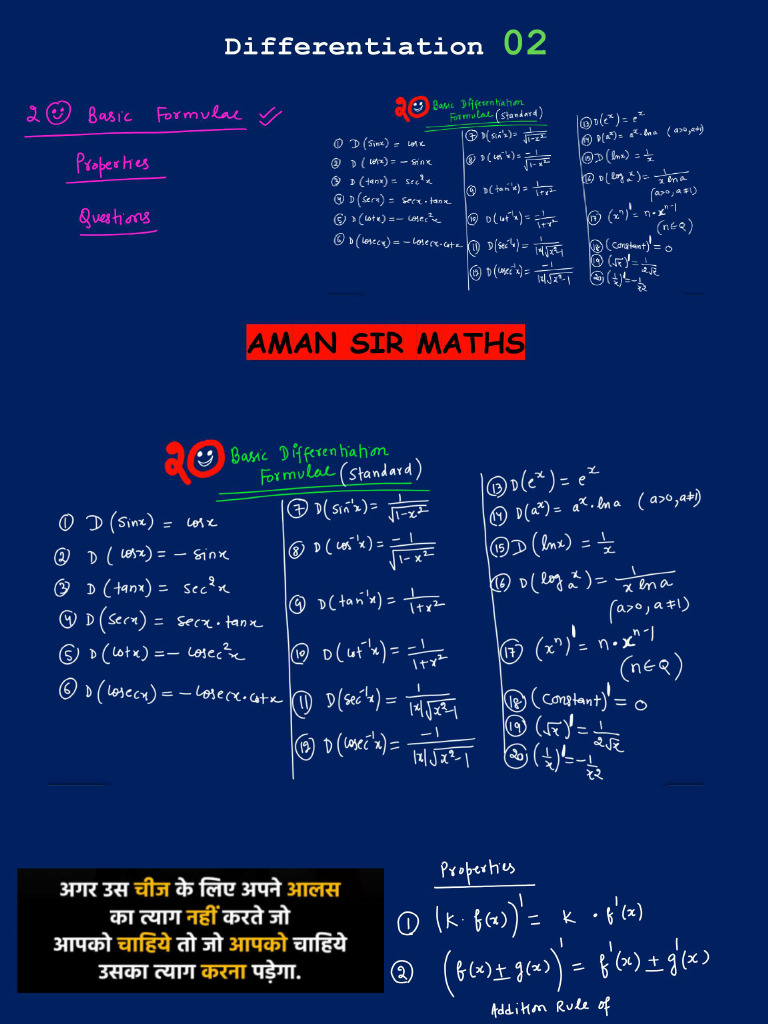 Differentiation 02
20 Basic Formulae ✓
Properties
Questions
20 Basic Differentiation
Formulae (Standard)
① D(sinx) = cosx
② D(cosx) = - sinx
③ D(tanx) = sec²x
④ D(secx) = secx·tanx
⑤ D(cotx) = - cosec²x
⑥ D(cosecx) = - cosecx·cotx
⑦ D(sin⁻¹x) = 1/√1-x²
⑧ D(cos⁻¹x) = -1/√1-x²
⑨ D(tan⁻¹x) = 1/1+x²
⑩ D(cot⁻¹x) = -1/1+x²
⑪ D(sec⁻¹x) = 1/|x|√x²-1
⑫ D(cosec⁻¹x) = -1/|x|√x²-1
⑬ D(eˣ) = eˣ
⑭ D(aˣ) = aˣ·lna (a>0, a≠1)
⑮ D(lnx) = 1/x
⑯ D(logₐx) = 1/x lna
(a>0, a≠1)
⑰ (xⁿ)' = n·xⁿ⁻¹
(n∈Q)
⑱ (Constant)' = 0
⑲ (√x)' = 1/2√x
⑳ (1/x)' = -1/x²
AMAN SIR MATHS
20 Basic Differentiation
Formulae (Standard)
① D(sinx) = cosx
② D(cosx) = - sinx
③ D(tanx) = sec²x
④ D(secx) = secx·tanx
⑤ D(cotx) = - cosec²x
⑥ D(cosecx) = - cosecx·cotx
⑦ D(sin⁻¹x) = 1/√1-x²
⑧ D(cos⁻¹x) = -1/√1-x²
⑨ D(tan⁻¹x) = 1/1+x²
⑩ D(cot⁻¹x) = -1/1+x²
⑪ D(sec⁻¹x) = 1/|x|√x²-1
⑫ D(cosec⁻¹x) = -1/|x|√x²-1
⑬ D(eˣ) = eˣ
⑭ D(aˣ) = aˣ·lna (a>0, a≠1)
⑮ D(lnx) = 1/x
⑯ D(logₐx) = 1/x lna
(a>0, a≠1)
⑰ (xⁿ)' = n·xⁿ⁻¹
(n∈Q)
⑱ (Constant)' = 0
⑲ (√x)' = 1/2√x
⑳ (1/x)' = -1/x²
अगर उस चीज के लिए अपने आलस
का त्याग नहीं करते जो
आपको चाहिये तो जो आपको चाहिये
उसका त्याग करना पड़ेगा.
Properties
① (K·f(x))' = K·f'(x)
② (f(x) ± g(x))' = f'(x) ± g'(x)
Addition Rule of